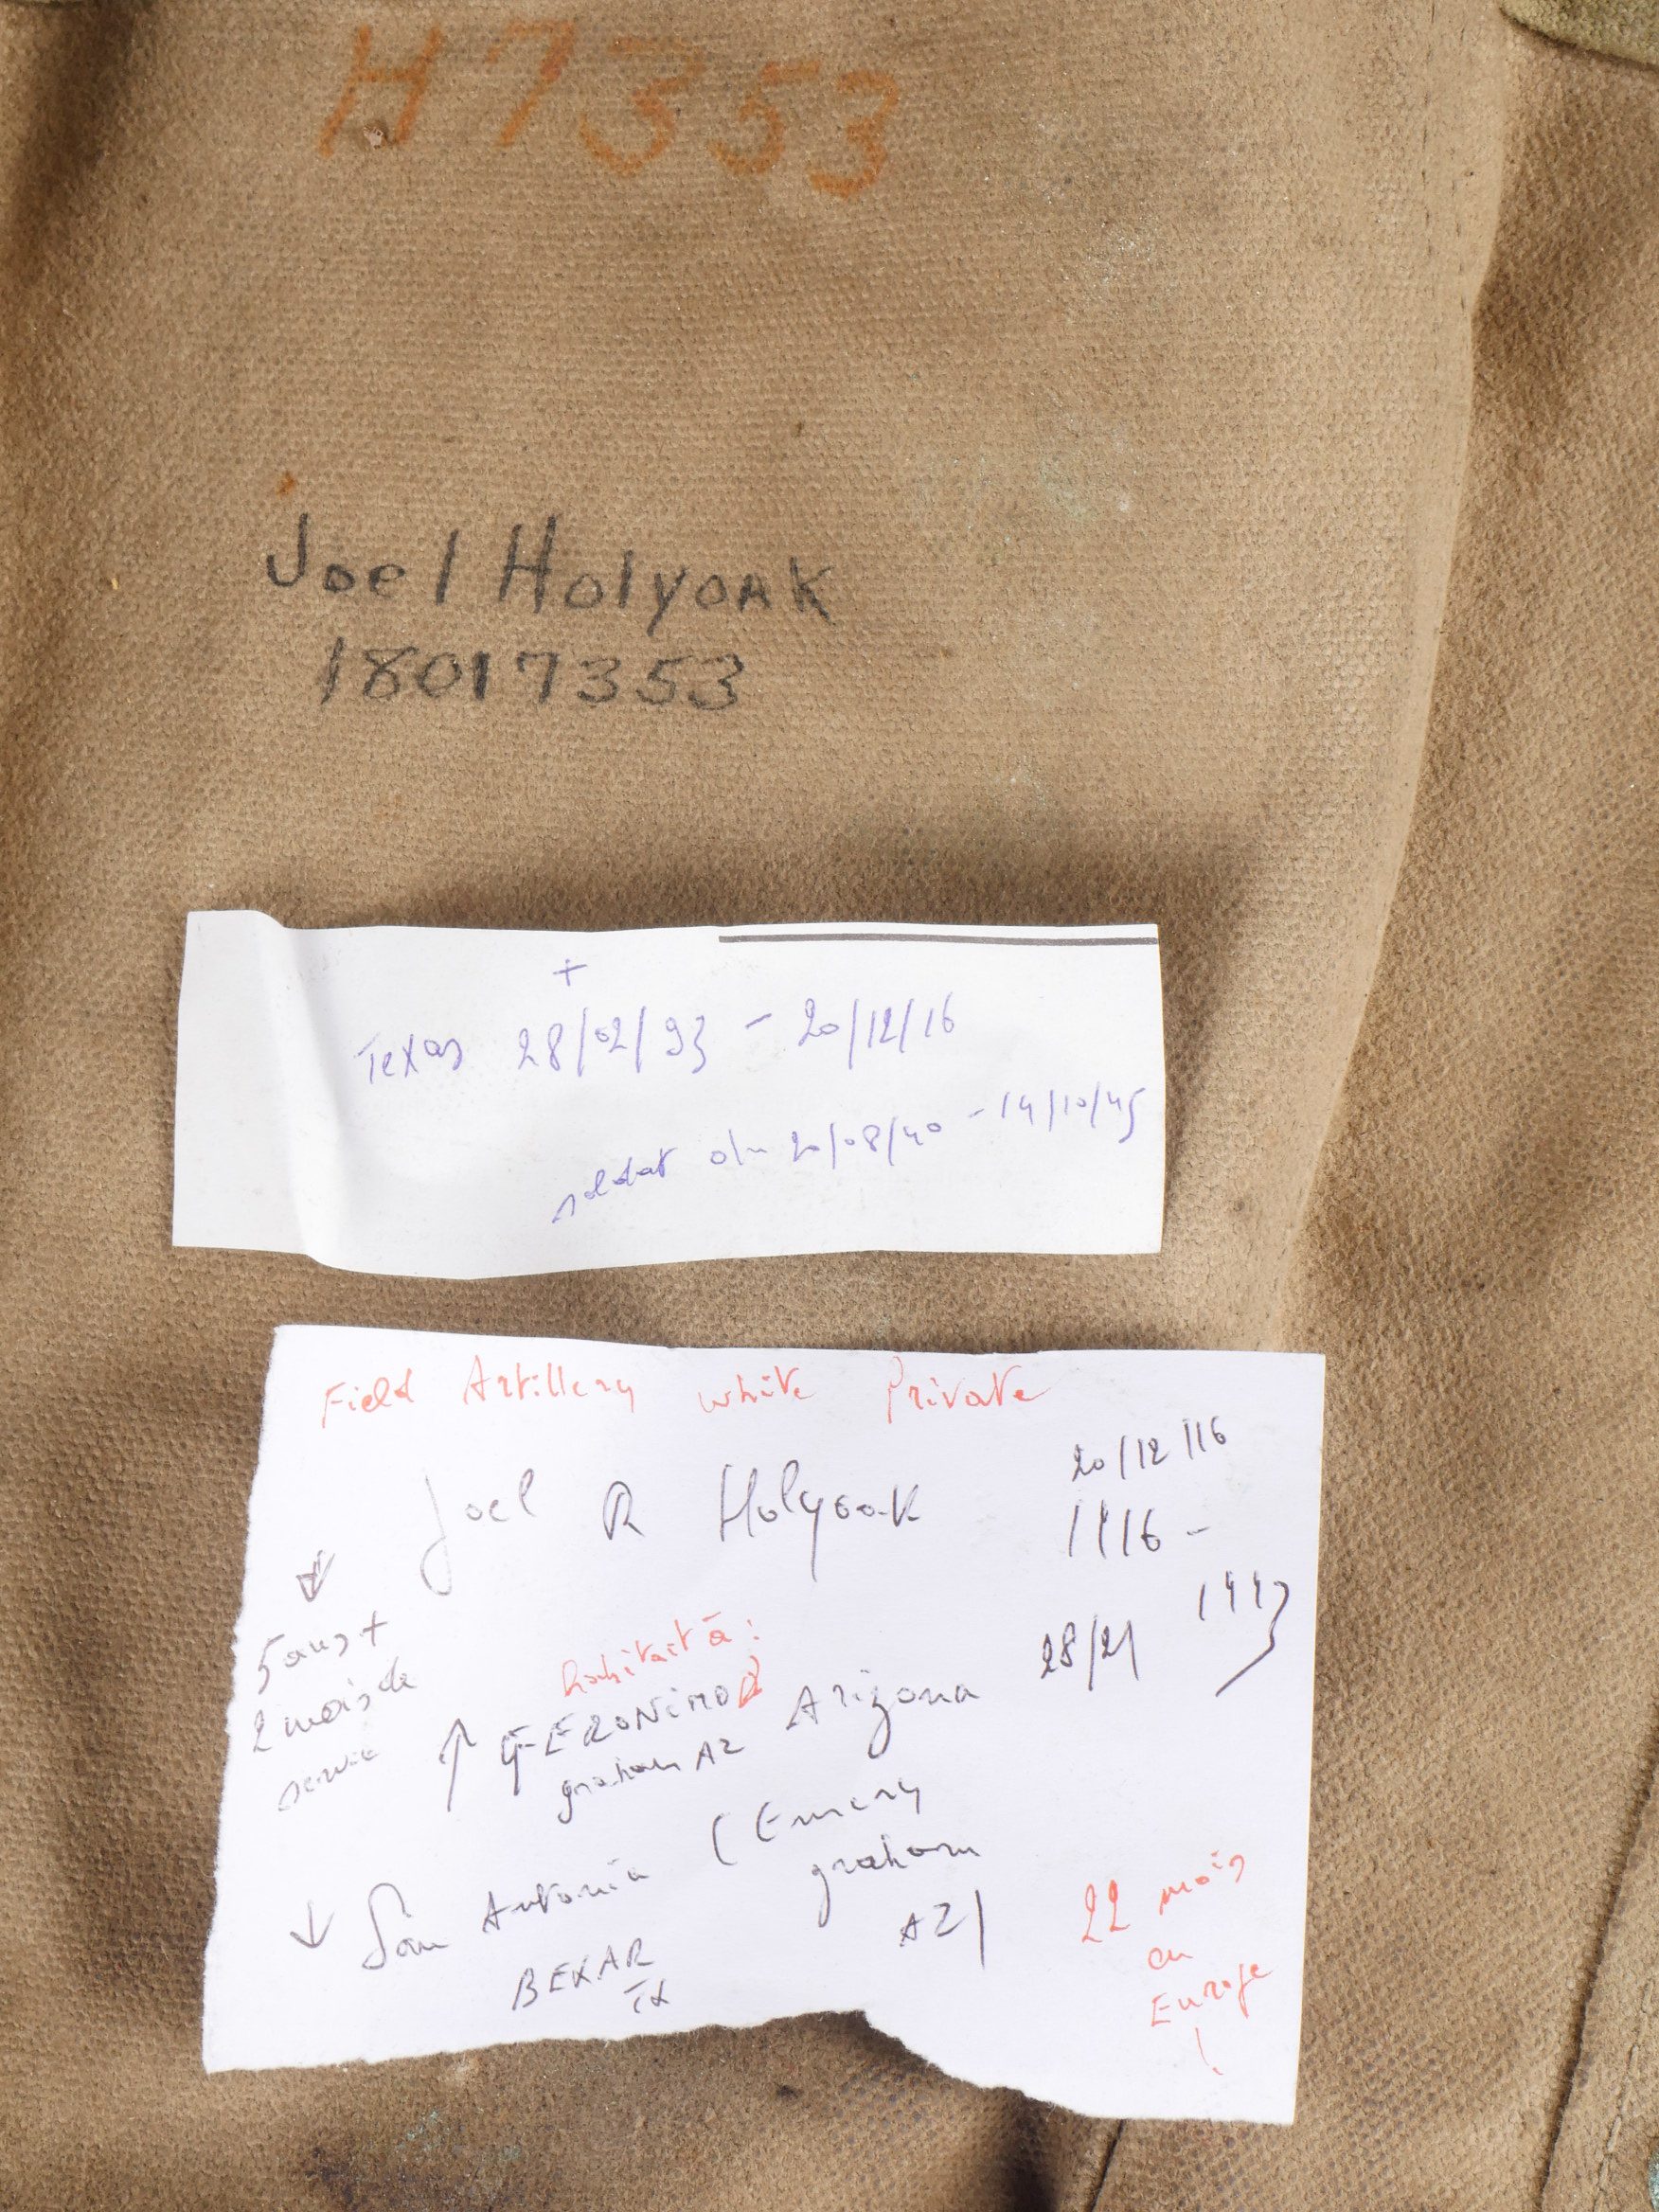 H7353
Joel Holyoak
18017353
+
Texas 28/02/93 - 20/12/16
soldat du 20/08/40 - 14/10/45
Field Artillery white Private
20/12/16
Joel R Holyoak 1916 -
1993
28/2/
5 ans +
2 mois de
service
habitait à :
GERONIMO Arizona
graham AZ
San Antonio (Emery
graham
AZ)
BEXAR
TX
22 mois
en
Europe
!